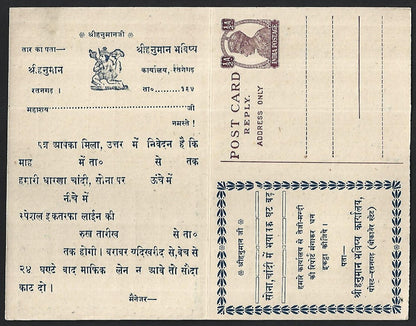 श्रीहनुमानजी
तार का पता—
श्रीहनुमान भविष्य
र्श्र.हनुमान
कार्यालय, रतनगढ़
रतनगढ़ ।
ता०..........१९५
महाशय ..........जी
नमस्ते !
पत्र आपका मिला, उत्तर में निवेदन है कि
माह में ता० से तक
हमारी धारणा चांदी, सोना पर ऊंचे में
नंचे में
स्पेशल इकतरफा लाईन की
रुख तारीख से ता०
तक होगी । बराबर यदि खरीद से, बेच से
२४ घण्टे बाद माफिक लेन न आवे तो सौदा
काट दो ।
मैनेजर—
½A
½A
INDIA POSTAGE
POST CARD
REPLY.
ADDRESS ONLY
श्रीहनुमान जी
सोना, चांदी में घट बढ़
हमारे कार्यालय से तेजी-मन्दी
की रिपोर्ट मंगाकर धन
इकट्ठा कीजिये ।
पता—
श्रीहनुमान भविष्य कार्यालय,
पोस्ट-रतनगढ़ (बीकानेर स्टेट)